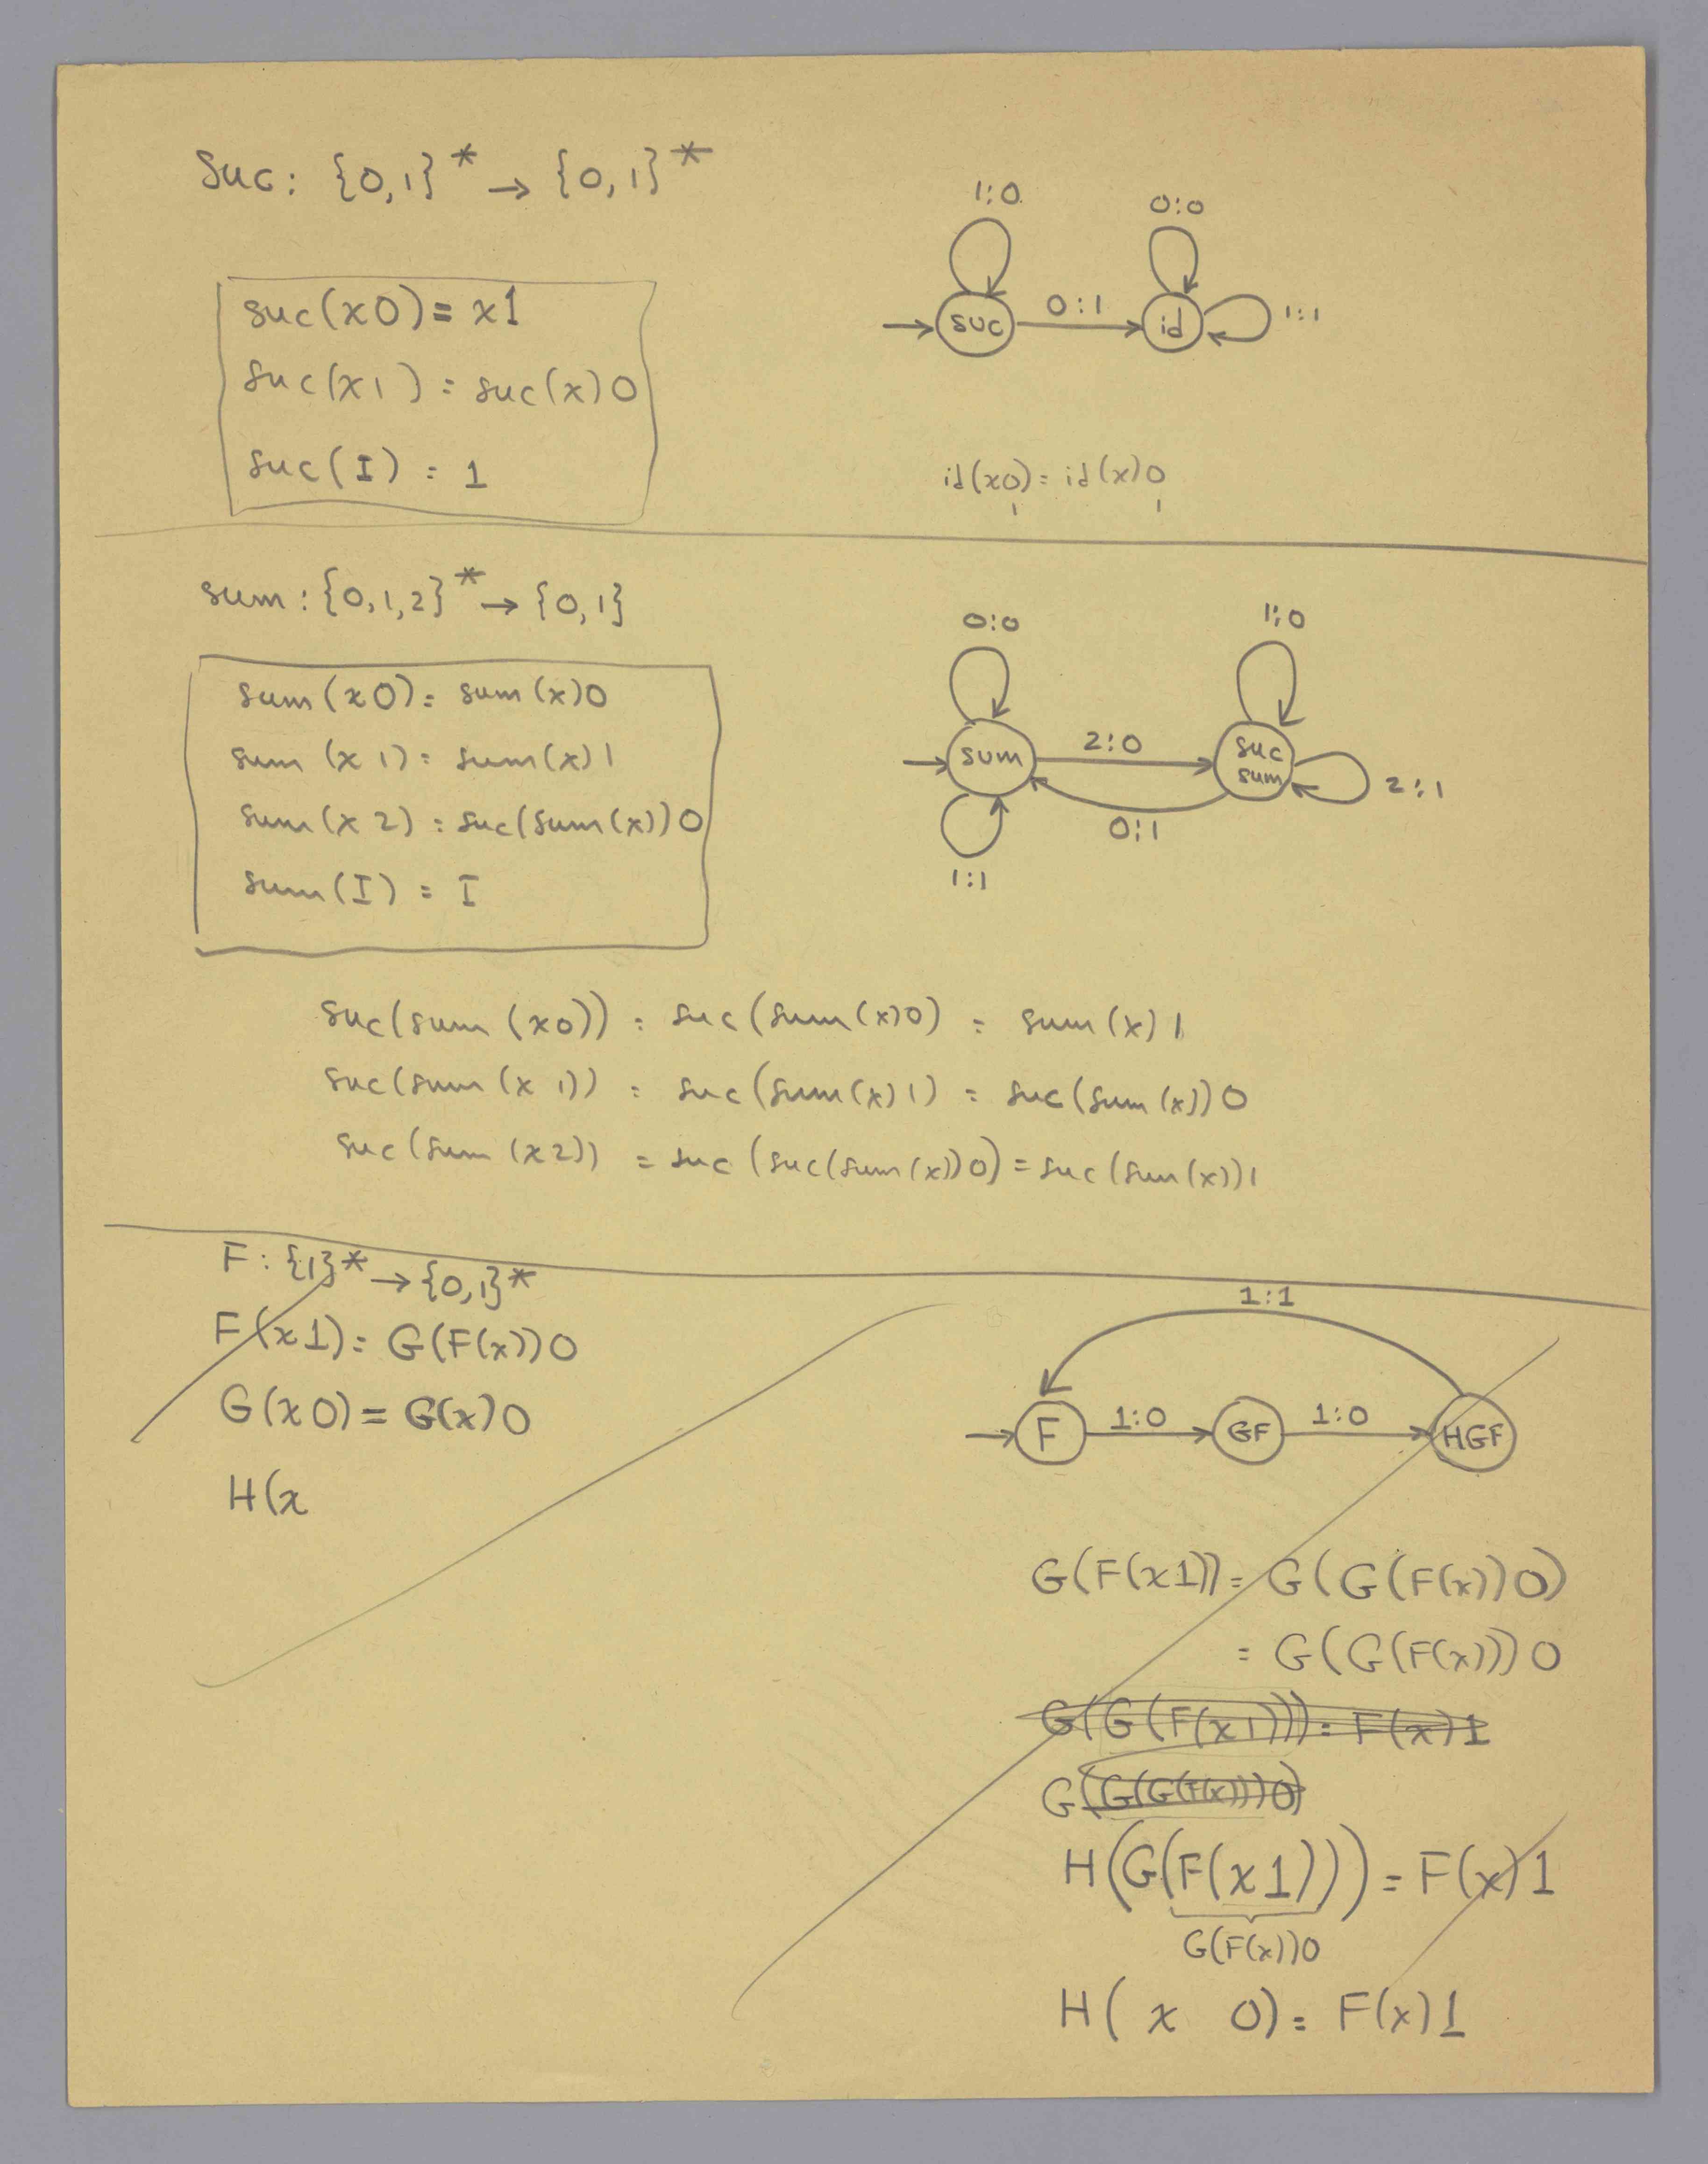 suc: {0,1}* → {0,1}*
suc(x0) = x1
suc(x1) = suc(x)0
suc(I) = 1
1:0
0:0
suc
0:1
id
1:1
id(x0) = id(x)0
1 1
sum: {0,1,2}* → {0,1}
sum(x0) = sum(x)0
sum(x1) = sum(x)1
sum(x2) = suc(sum(x))0
sum(I) = I
0:0
1:0
sum
2:0
suc
sum
2:1
0:1
1:1
suc(sum(x0)) = suc(sum(x)0) = sum(x)1
suc(sum(x1)) = suc(sum(x)1) = suc(sum(x))0
suc(sum(x2)) = suc(suc(sum(x))0) = suc(sum(x))1
F: {1}* → {0,1}*
F(x1) = G(F(x))0
G(x0) = G(x)0
H(x
1:1
F
1:0
GF
1:0
HGF
G(F(x1)) = G(G(F(x))0)
= G(G(F(x)))0
G(G(F(x1))) = F(x)1
G(G(G(F(x)))0)
H(G(F(x1))) = F(x)1
G(F(x))0
H( x 0) = F(x)1